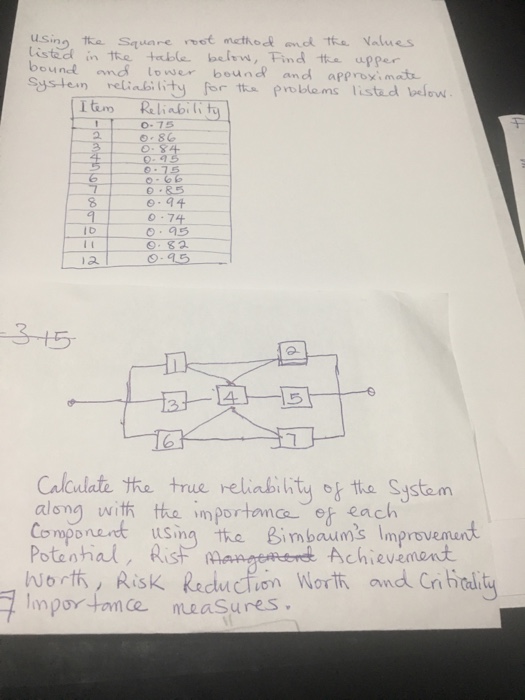 Using the Square root method and the Values
listed in the table below, Find the upper
bound and lower bound and approximate
System reliability for the problems listed below.
Item Reliability
1 0.75
2 0.86
3 0.84
4 0.95
5 0.75
6 0.66
7 0.85
8 0.94
9 0.74
10 0.95
11 0.82
12 0.95
3-15
1
2
3
4
5
6
7
Calculate the true reliability of the System
along with the importance of each
Component using the Birnbaum's Improvement
Potential, Rist Achievement
Worth, Risk Reduction Worth and Criticality
7 Importance measures.